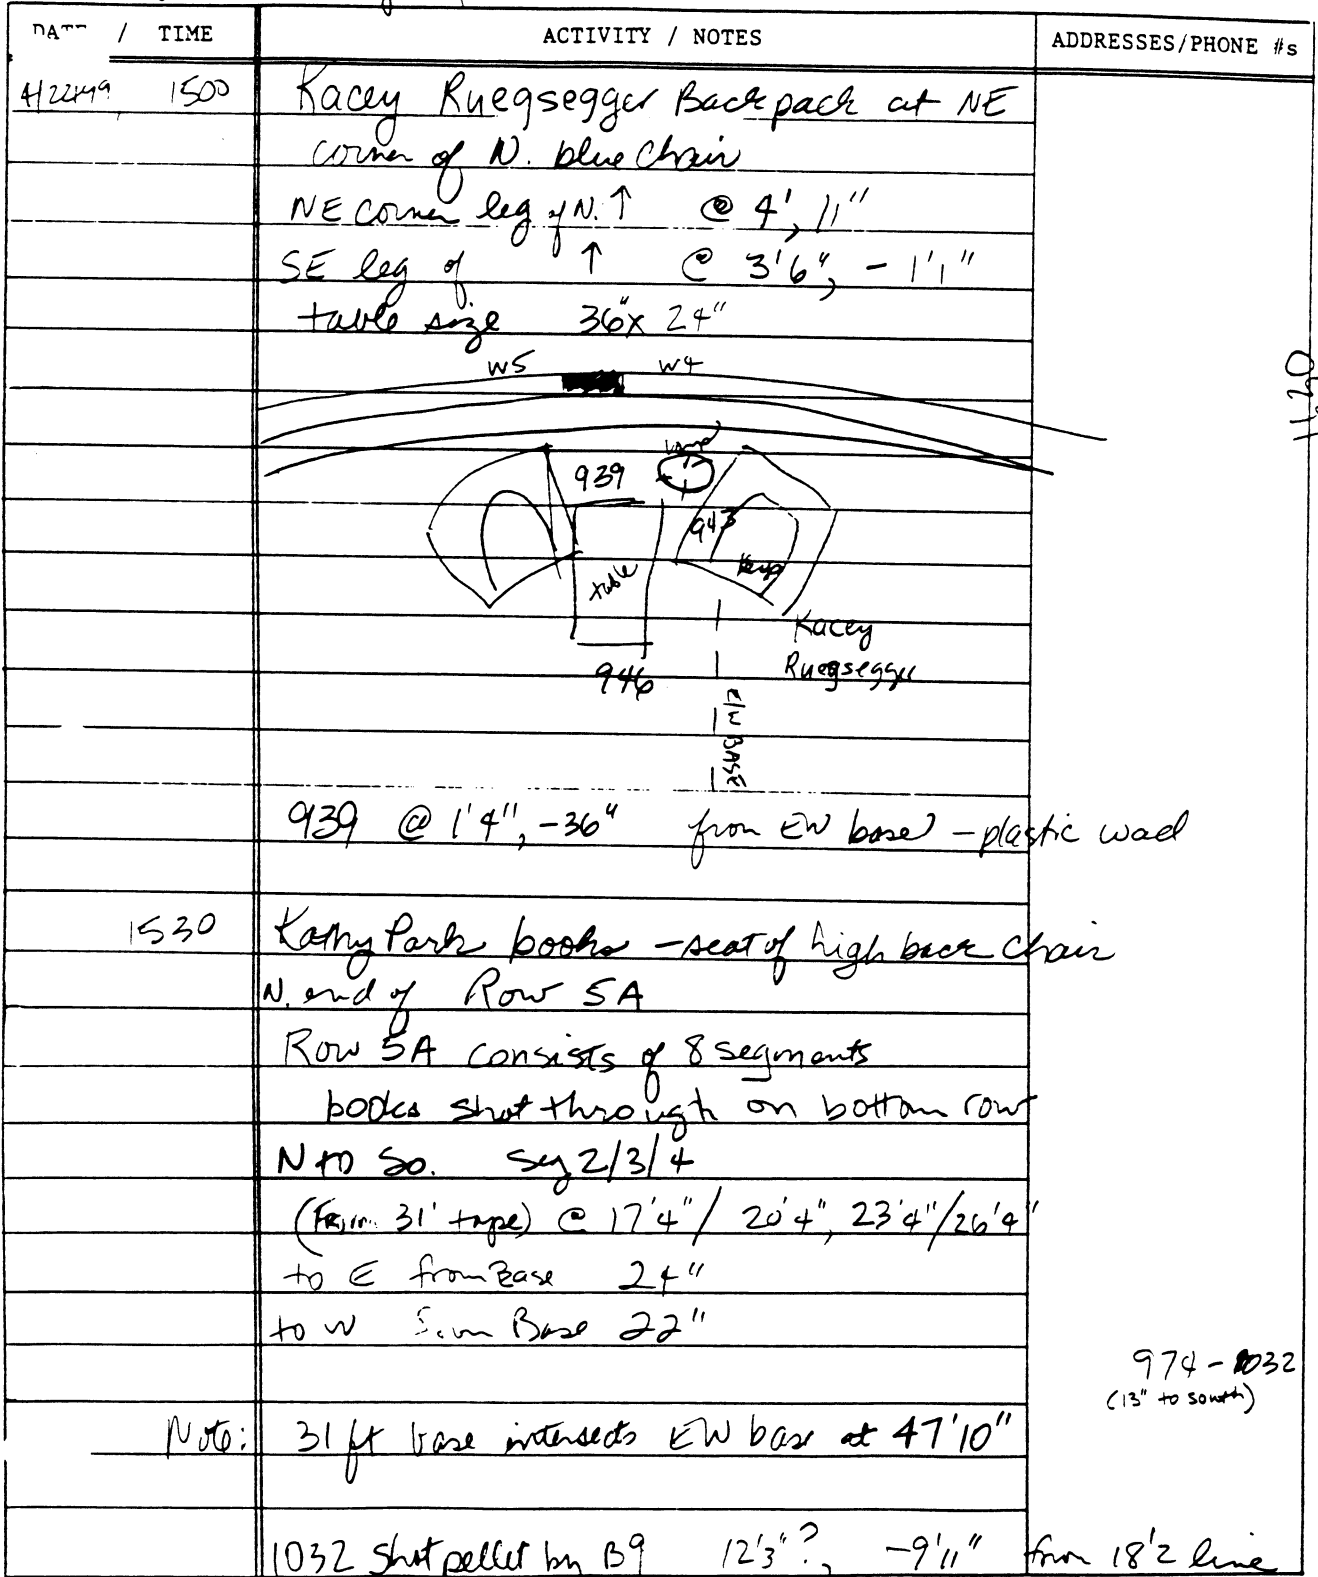 DATE / TIME ACTIVITY / NOTES ADDRESSES/PHONE #s
4/22/99 1500 Kacey Ruegsegger Backpack at NE
corner of N. blue chair
NE corner leg of N. ↑ @ 4', 11"
SE leg of ↑ @ 3'6", - 1'1"
table size 36" x 24"
1120
W5 W4
lamp
939
943
table
Kacey
Ruegsegger
946
E/W BASE
939 @ 1'4", -36" from EW base - plastic wad
1530 Kathy Park books - seat of high back chair
N. end of Row 5A
Row 5A consists of 8 segments
books shot through on bottom row
N to So. Seg 2/3/4
(From 31' tape) @ 17'4" / 20'4", 23'4"/26'4"
to E from Base 24"
to W from Base 22"
974 - 1032
(13" to south)
Note: 31 ft base intersects EW base at 47'10"
1032 shot pellet by B9 12'3"?, -9'11" from 18'2 line